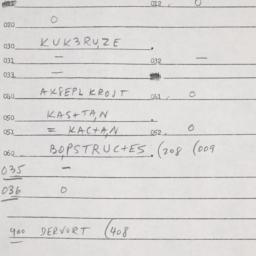 012. 0
020 0
030 KUK3RUZE .
031 — 032 —
033 —
040 AKSEPLKROST 041. 0
050 KAS+TAN .
051 = KAC+AN 052. 0
060 BOPSTRUC+ES. (208 (009
035 —
036 0
900 DERVORT (408